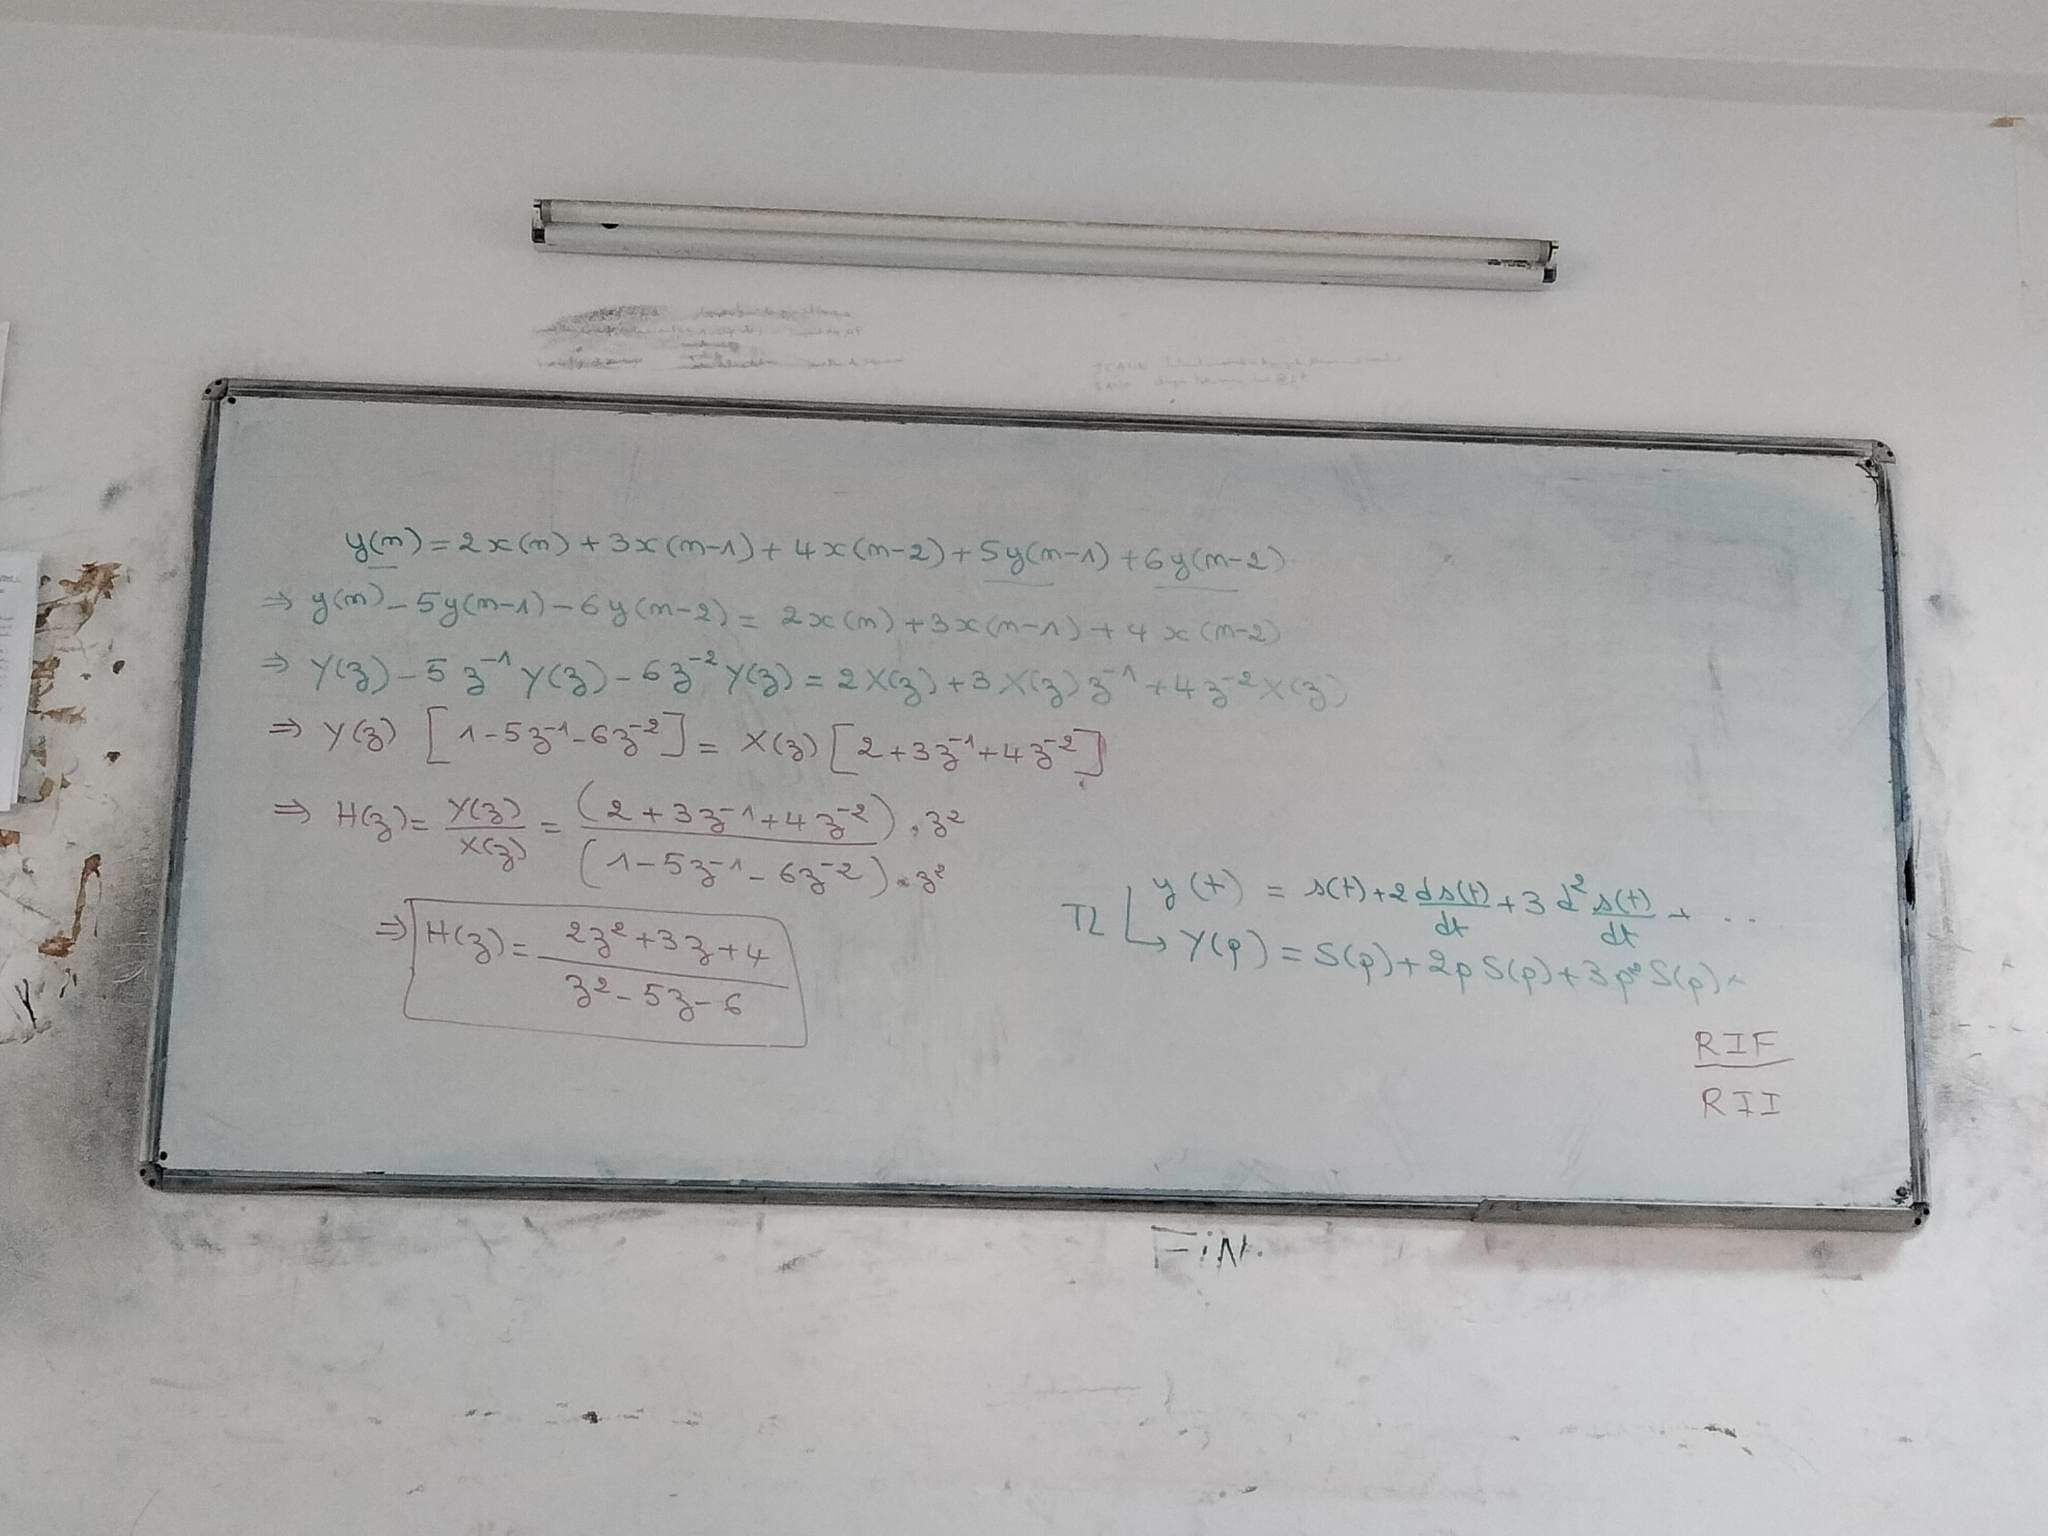 y(n) = 2x(n) + 3x(n-1) + 4x(n-2) + 5y(n-1) + 6y(n-2)
⇒ y(n) - 5y(n-1) - 6y(n-2) = 2x(n) + 3x(n-1) + 4x(n-2)
⇒ Y(z) - 5z⁻¹Y(z) - 6z⁻²Y(z) = 2X(z) + 3X(z)z⁻¹ + 4z⁻²X(z)
⇒ Y(z) [1-5z⁻¹-6z⁻²] = X(z) [2+3z⁻¹+4z⁻²]
⇒ H(z) = Y(z)/X(z) = (2+3z⁻¹+4z⁻²).z² / (1-5z⁻¹-6z⁻²).z²
⇒ H(z) = (2z²+3z+4)/(z²-5z-6)
TL
y(t) = s(t) + 2 ds(t)/dt + 3 d²s(t)/dt + ...
Y(p) = S(p) + 2pS(p) + 3p²S(p) +
RIF
RII
FiN.